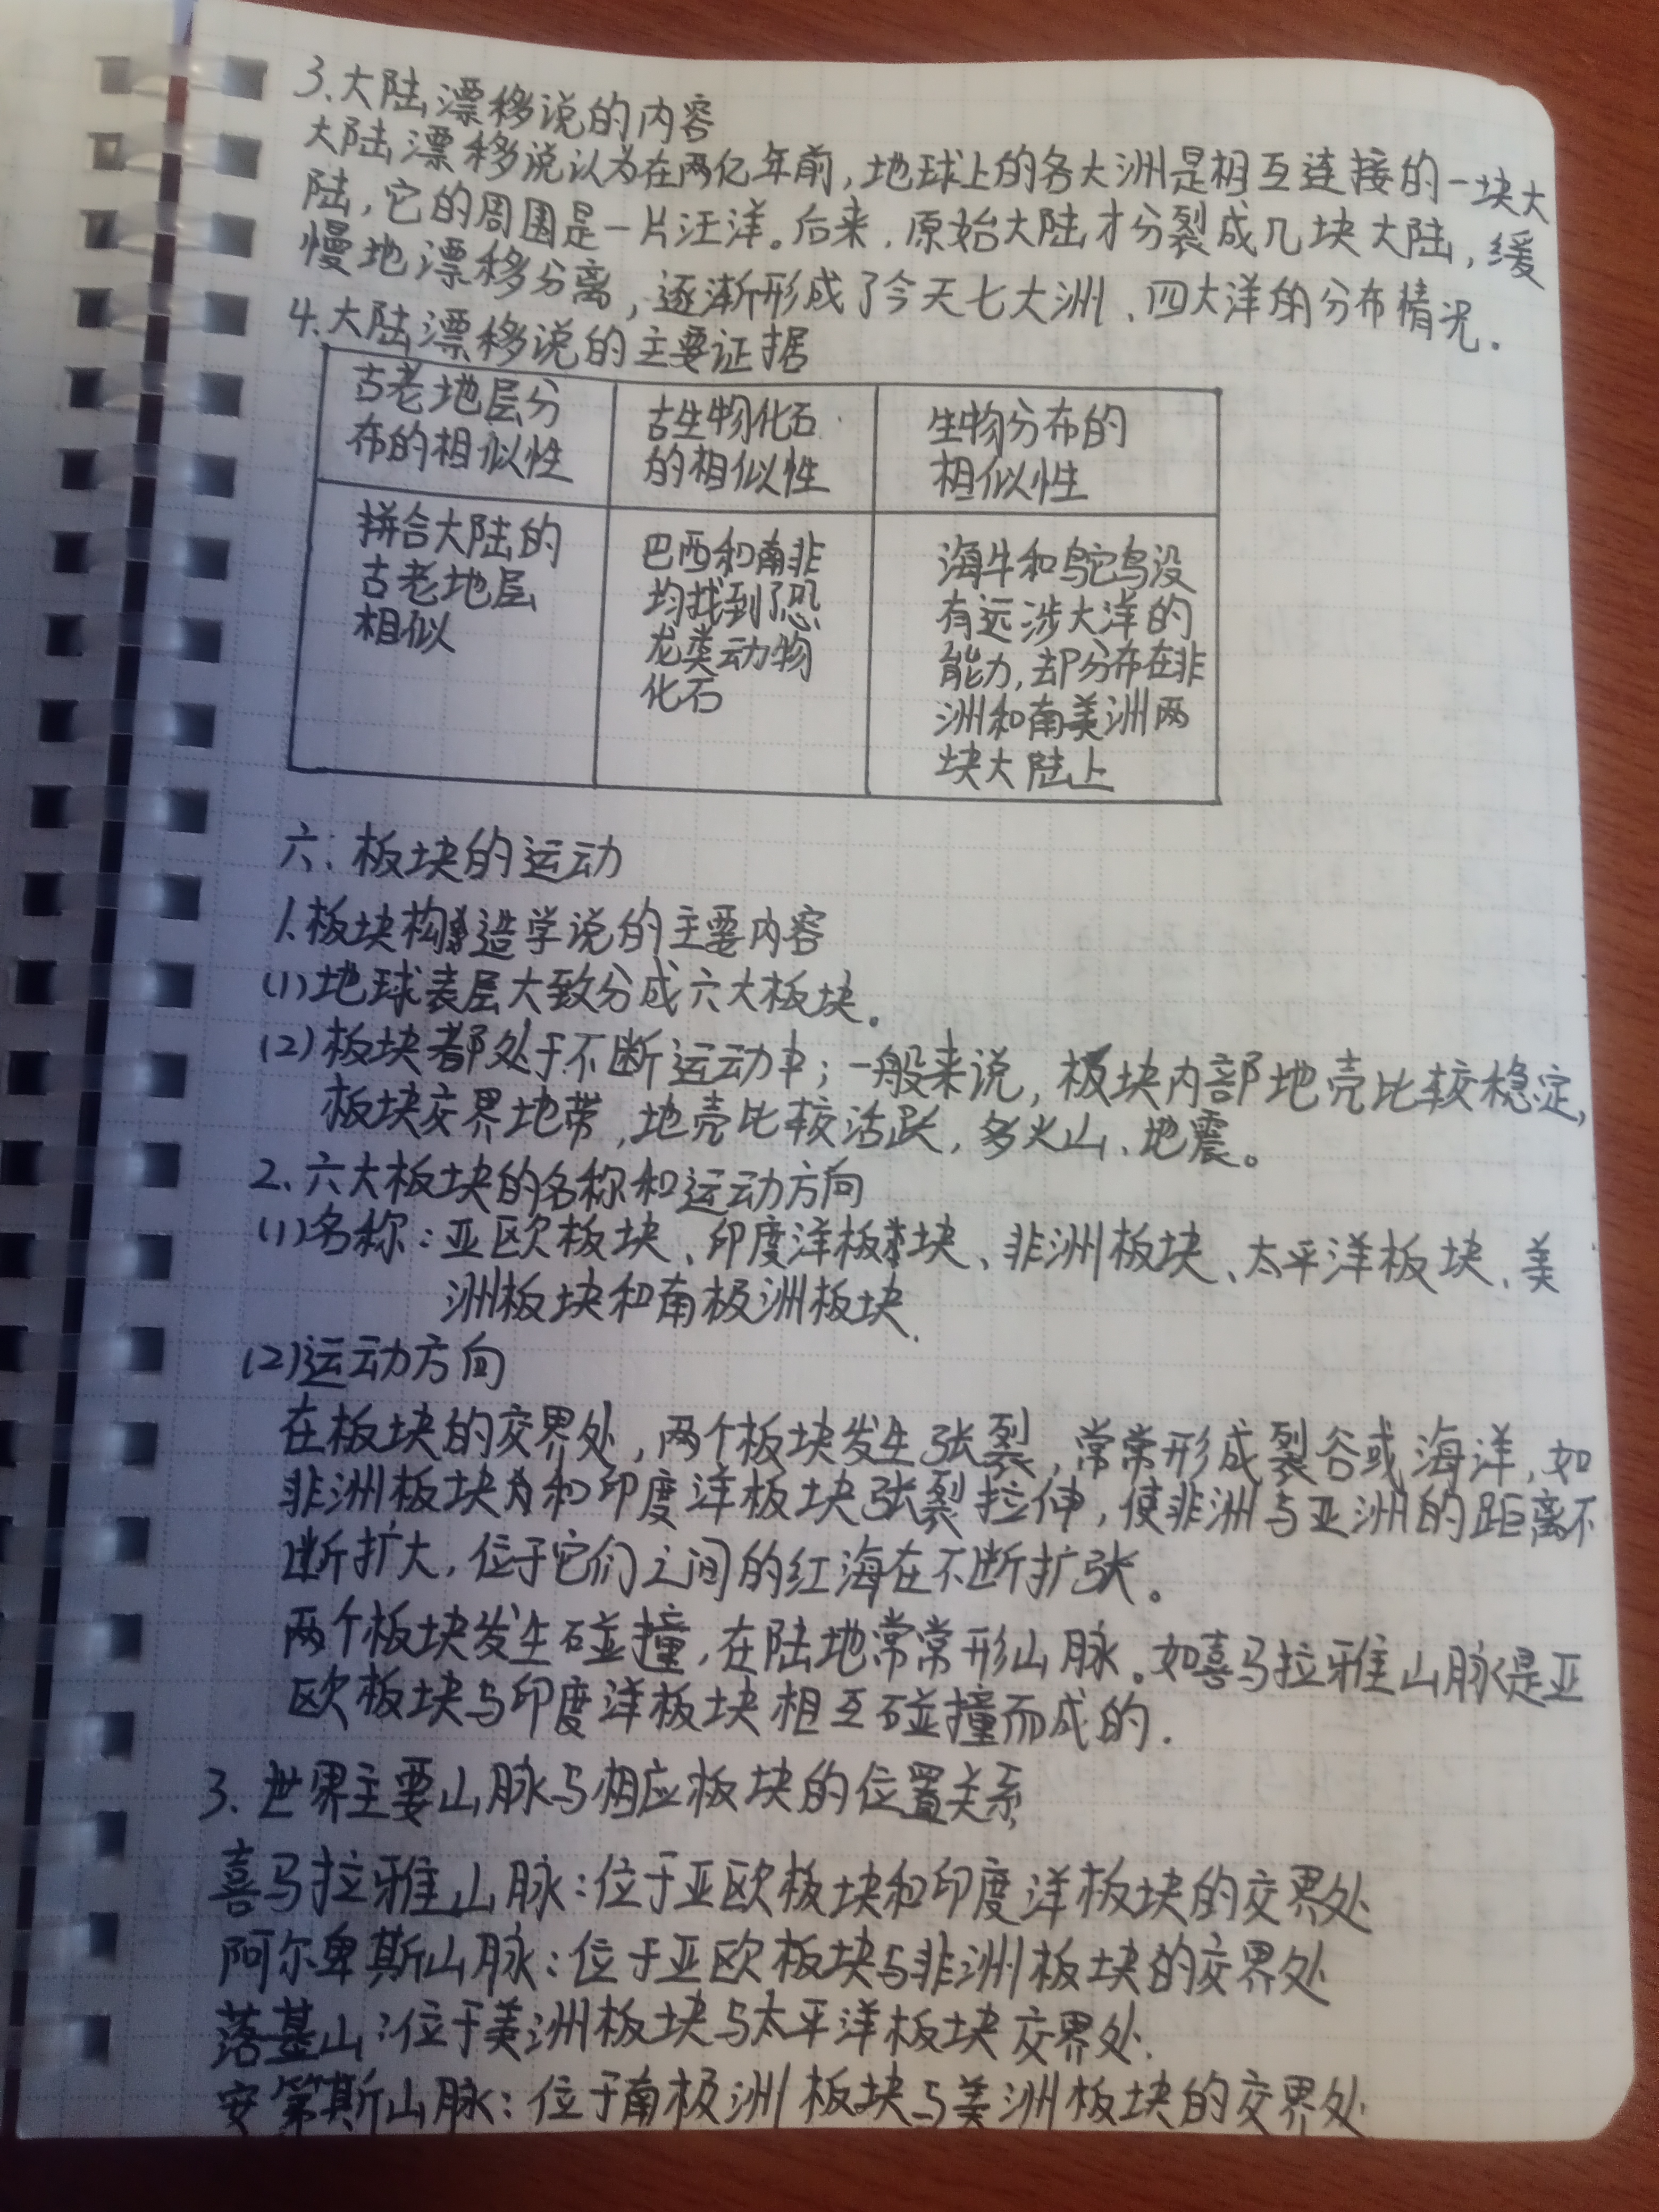 3.大陆漂移说的内容
大陆漂移说认为在两亿年前,地球上的各大洲是相互连接的一块大
陆,它的周围是一片汪洋。后来,原始大陆才分裂成几块大陆,缓
慢地漂移分离,逐渐形成了今天七大洲、四大洋的分布情况.
4.大陆漂移说的主要证据
古老地层分
布的相似性
古生物化石
的相似性
生物分布的
相似性
拼合大陆的
古老地层
相似
巴西和南非
均找到了恐
龙类动物
化石
海牛和鸵鸟没
有远涉大洋的
能力,却分布在非
洲和南美洲两
块大陆上
六:板块的运动
1.板块构造学说的主要内容
(1)地球表层大致分成六大板块。
(2)板块都处于不断运动中;一般来说,板块内部地壳比较稳定,
板块交界地带,地壳比较活跃,多火山、地震。
2.六大板块的名称和运动方向
(1)名称:亚欧板块、印度洋板块、非洲板块、太平洋板块、美
洲板块和南极洲板块.
(2)运动方向
在板块的交界处,两个板块发生张裂,常常形成裂谷或海洋,如
非洲板块和印度洋板块张裂拉伸,使非洲与亚洲的距离不
断扩大,位于它们之间的红海在不断扩张。
两个板块发生碰撞,在陆地常常形山脉。如喜马拉雅山脉是亚
欧板块与印度洋板块相互碰撞而成的.
3.世界主要山脉与相应板块的位置关系
喜马拉雅山脉:位于亚欧板块和印度洋板块的交界处
阿尔卑斯山脉:位于亚欧板块与非洲板块的交界处
落基山:位于美洲板块与太平洋板块交界处.
安第斯山脉:位于南极洲板块与美洲板块的交界处.